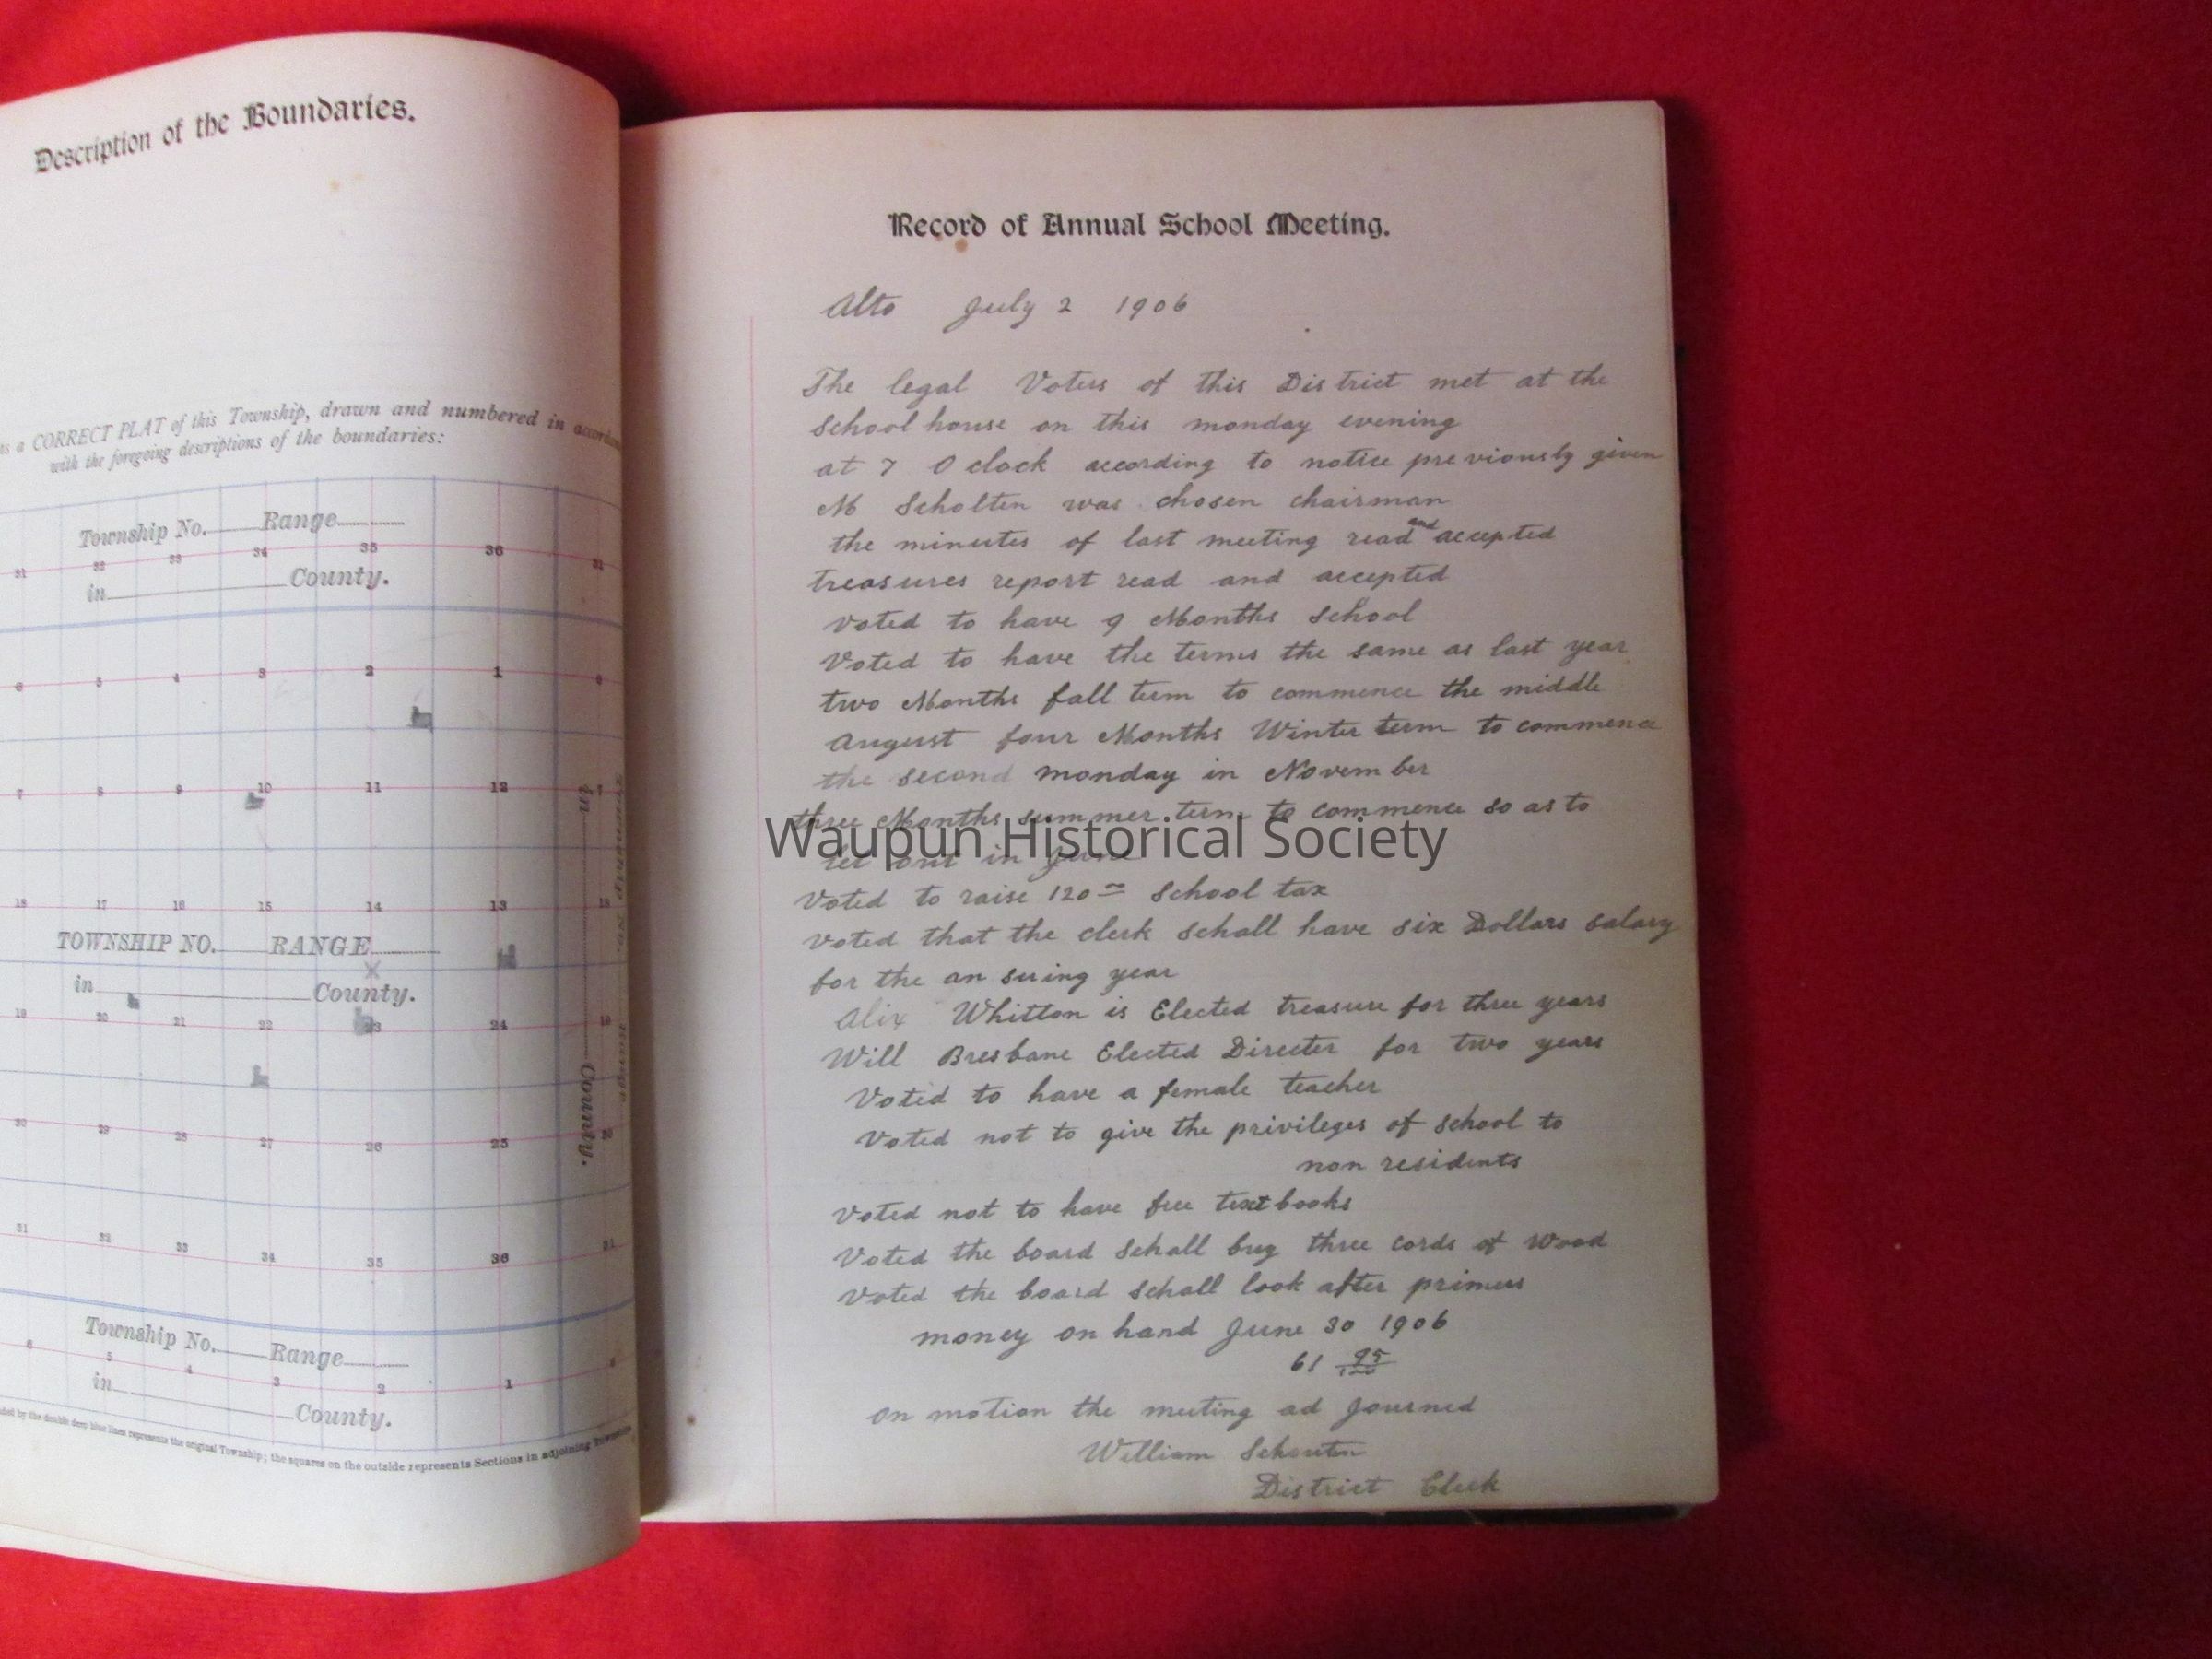 Description of the Boundaries.
ts a CORRECT PLAT of this Township, drawn and numbered in
with the foregoing descriptions of the boundaries:
Township No. Range
31 32 33 34 35 36 31
in County.
6 5 4 3 2 1 6
7 8 9 10 11 12 7
in
18 17 16 15 14 13 18
TOWNSHIP NO. RANGE
in County.
19 20 21 22 23 24 19
County.
30 29 28 27 26 25 30
31 32 33 34 35 36 31
Township No. Range
6 5 4 3 2 1
in County.
by the double deep blue lines represents the original Township; the squares on the outside represents Sections in adjoining
Record of Annual School Meeting.
Alto July 2 1906
The legal Voters of this District met at the
School house on this monday evening
at 7 O clock according to notice previously given
M Scholten was chosen chairman
the minutes of last meeting read and accepted
treasures report read and accepted
voted to have 9 Months School
Voted to have the terms the same as last year
two Months fall term to commence the middle
August four Months Winter term to commence
the second monday in November
three Months summer term to commence so as to
let out in June
Waupun Historical Society
Voted to raise 120 School tax
voted that the clerk schall have six Dollars salary
for the an suing year
Alix Whitton is Elected treasure for three years
Will Bresbane Elected Directer for two years
Voted to have a female teacher
Voted not to give the privileges of school to
non residents
Voted not to have free textbooks
Voted the board schall buy three cords of wood
Voted the board schall look after primers
money on hand June 30 1906
61 95/100
on motion the meeting ad journed
William Schouten
District Clerk